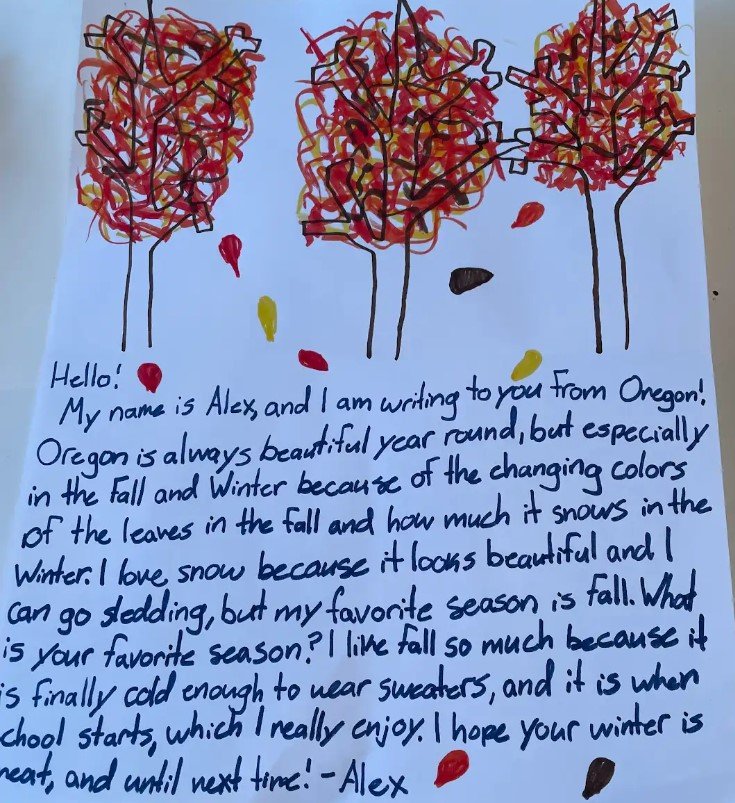 Hello!
My name is Alex, and I am writing to you from Oregon!
Oregon is always beautiful year round, but especially
in the Fall and Winter because of the changing colors
of the leaves in the fall and how much it snows in the
Winter. I love snow because it looks beautiful and I
can go sledding, but my favorite season is fall. What
is your favorite season? I like fall so much because it
is finally cold enough to wear sweaters, and it is when
chool starts, which I really enjoy. I hope your winter is
neat, and until next time! - Alex